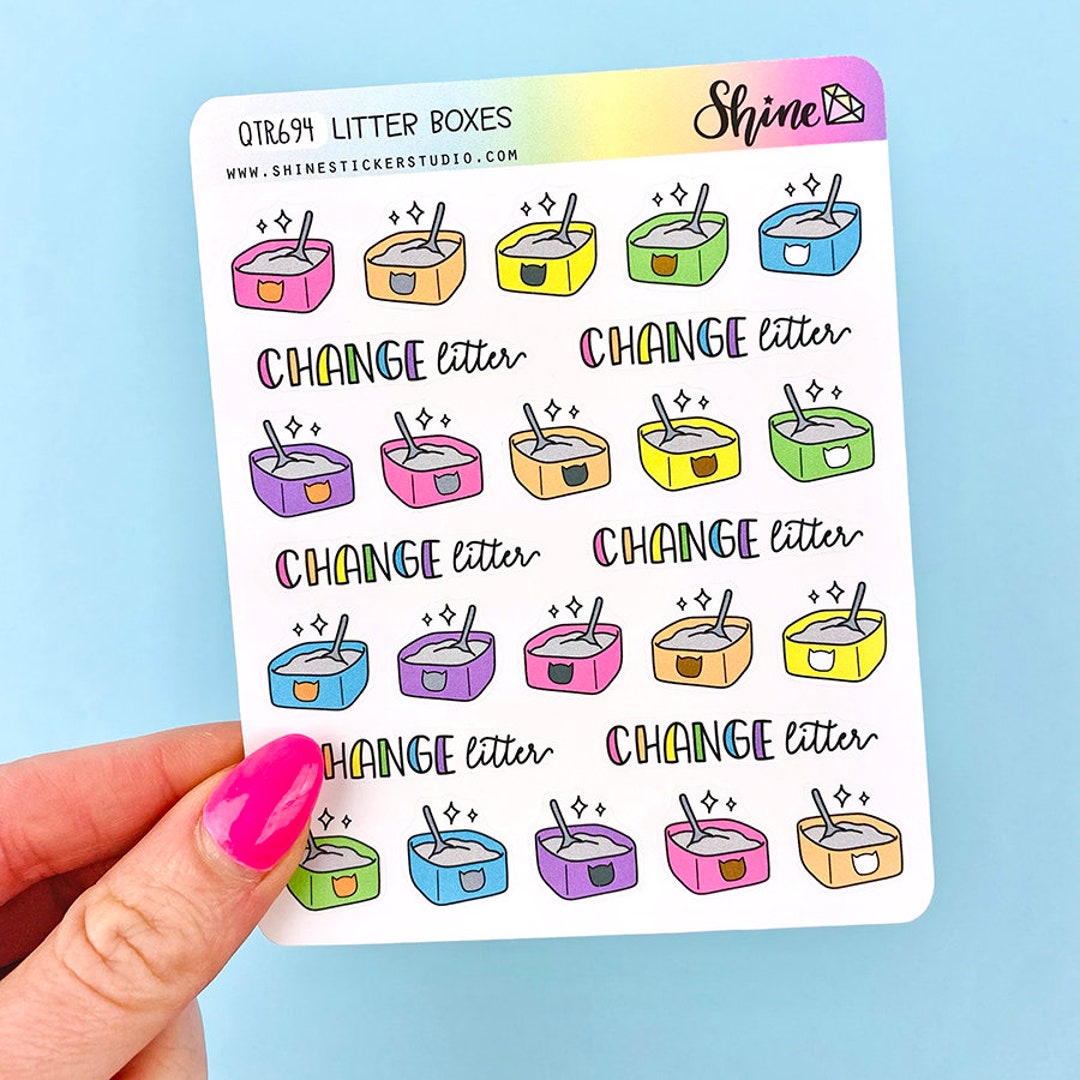 QTR694 LITTER BOXES
Shine
WWW.SHINESTICKERSTUDIO.COM
CHANGE litter
CHANGE litter
CHANGE litter
CHANGE litter
HANGE litter
CHANGE litter